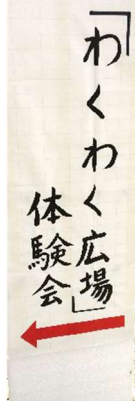 「わくわく広場」
体験会